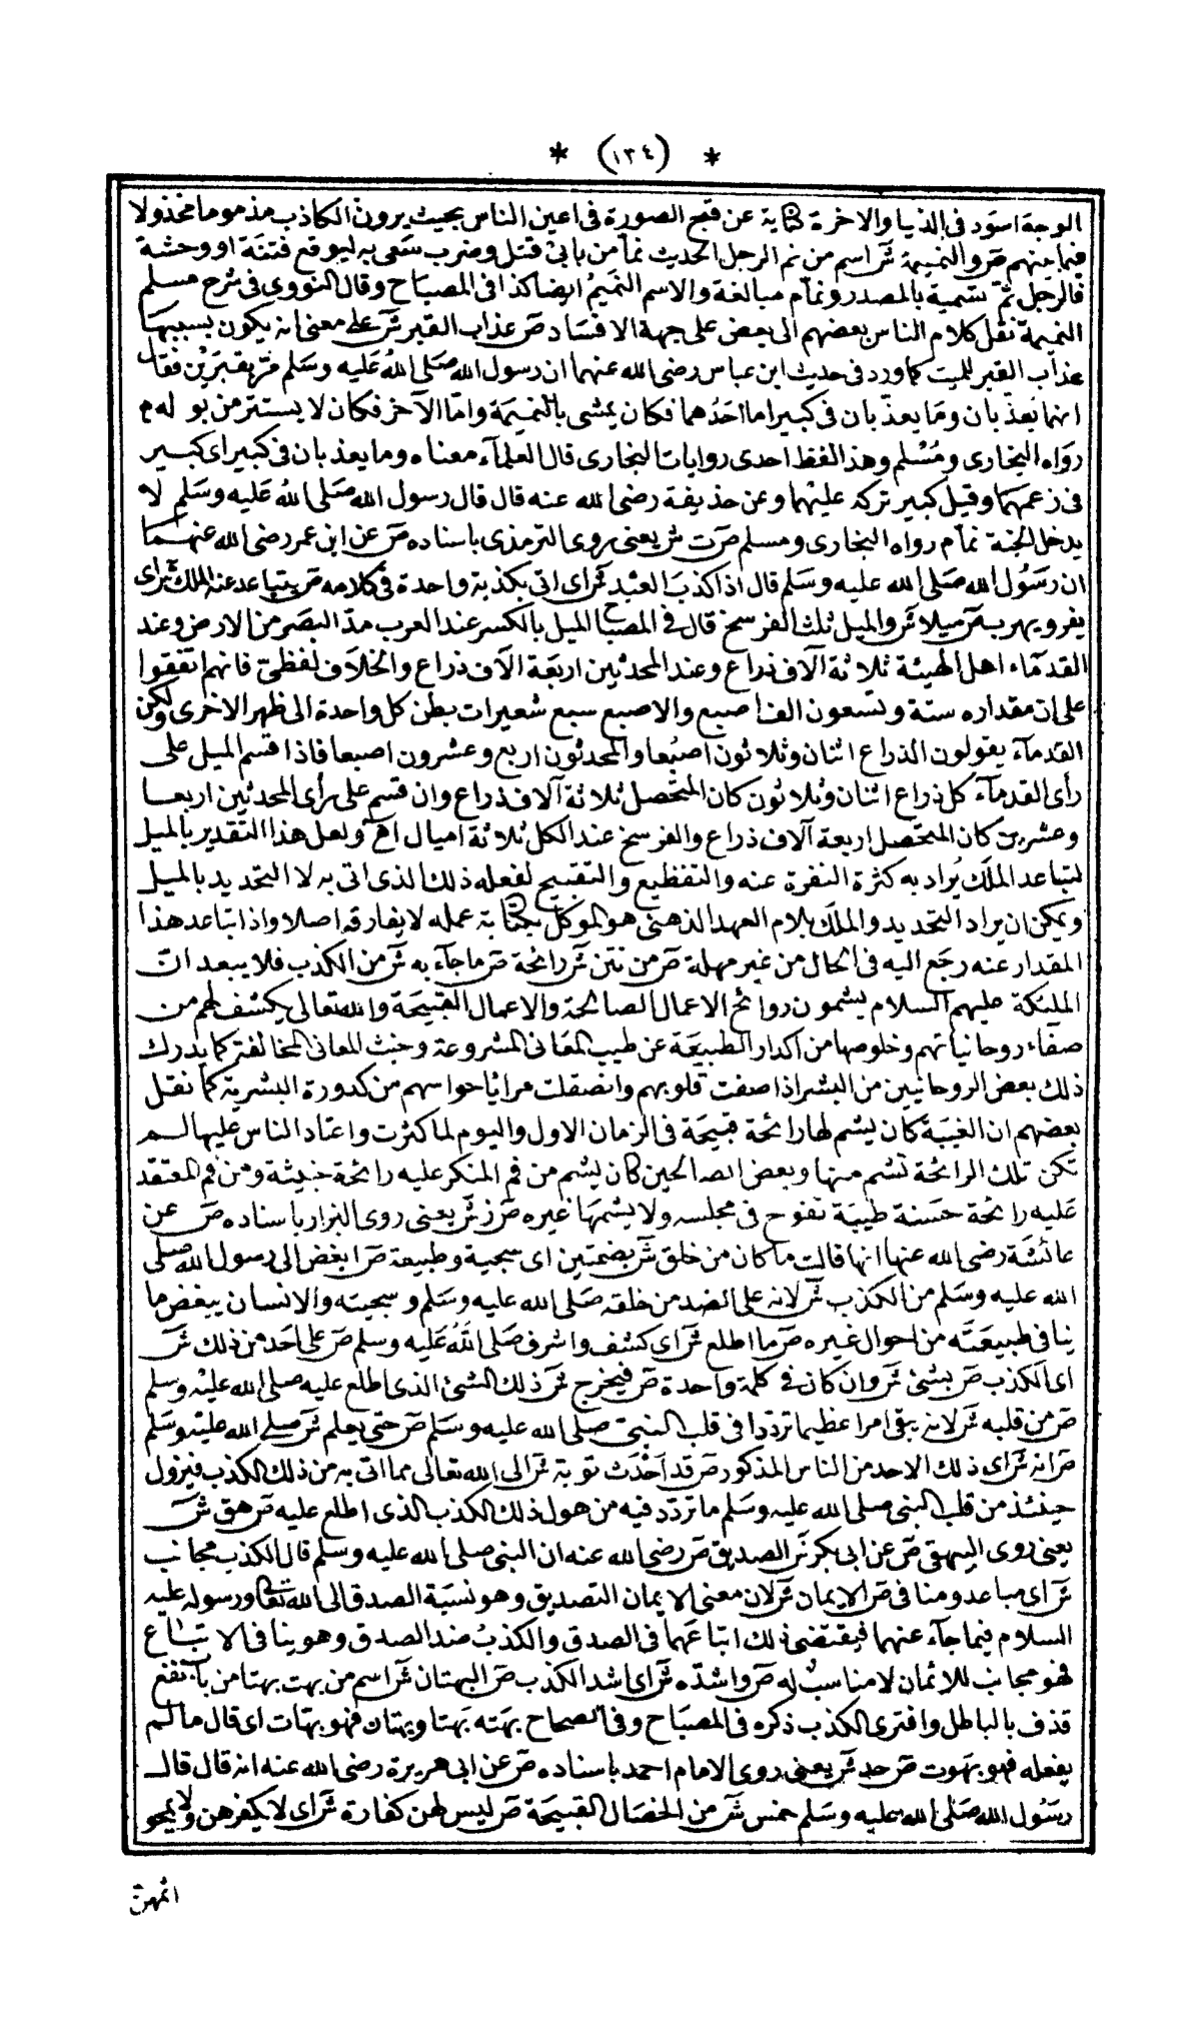 * (١٣٤) *
الوجة اسود فى الدنيا والاخرة كناية عن قبح الصورة فى اعين الناس بحيث يرون الكاذب مذموما مخذولا
فيما بينهم ص والنميمة ش اسم من نم الرجل الحديث نما من بابى قتل وضرب سعى به ليوقع فتنة او وحشة
فالرجل نم تسمية بالمصدر ونمام مبالغة والاسم النميم ايضا كذا فى المصباح وقال النووى فى شرح مسلم
النميمة نقل كلام الناس بعضهم الى بعض على جهة الافساد ص عذاب القبر ش على معنى انه يكون بسببها
عذاب القبر للميت كما ورد فى حديث ابن عباس رضى الله عنهما ان رسول الله صلى الله عليه وسلم مر بقبرين فقال
انهما يعذبان وما يعذبان فى كبير اما احدهما فكان يمشى بالنميمة واما الآخر فكان لا يستتر من بوله م
رواه البخارى ومسلم وهذا لفظ احدى روايات البخارى قال العلمآء معناه وما يعذبان فى كبير اى كبير
فى زعمهما وقيل كبير تركه عليهما وعن حذيفة رضى الله عنه قال قال رسول الله صلى الله عليه وسلم لا
يدخل الجنة نمام رواه البخارى ومسلم ص ت ش يعنى روى الترمذى باسناده ص عن ابن عمر رضى الله عنهما
ان رسول الله صلى الله عليه وسلم قال اذا كذب العبد ش اى اتى بكذبة واحدة فى كلامه ص يتباعد عنه الملك ش اى
يفر ويهرب ص ميلا ش والميل ثلث الفرسخ قال فى المصباح الميل بالكسر عند العرب مد البصر من الارض وعند
القدمآء اهل الهيئة ثلاثة آلاف ذراع وعند المحدثين اربعة الآف ذراع والخلاف لفظى فانهم اتفقوا
على ان مقداره ستة وتسعون الف اصبع والاصبع سبع شعيرات بطن كل واحدة الى ظهر الاخرى ولكن
القدمآء يقولون الذراع اثنان وثلاثون اصبعا والمحدثون اربع وعشرون اصبعا فاذا قسم الميل على
رأى القدمآء كل ذراع اثنان وثلاثون كان المتحصل ثلاثة آلاف ذراع وان قسم على رأى المحدثين اربعا
وعشرين كان المتحصل اربعة آلاف ذراع والفرسخ عند الكل ثلاثة اميال اه ولعل هذا التقدير بالميل
لتباعد الملك يراد به كثرة النفرة عنه والتفظيع والتقبيح لفعله ذلك الذى اتى به لا التحديد بالميل
ويمكن ان يراد التحديد والملك بلام العهد الذهنى هو الموكل بكتابة عمله لا يفارقه اصلا واذا تباعد هذا
المقدار عنه رجع اليه فى الحال من غير مهلة ص من نتن ش رائحة ص ما جآء به ش من الكذب فلا يبعد ان
الملئكة عليهم السلام يشمون روائح الاعمال الصالحة والاعمال القبيحة والله تعالى يكشف لهم من
صفاء روحانياتهم وخلوصها من اكدار الطبيعة عن طيب المعانى المشروعة وخبث المعانى المخالفة كما يدرك
ذلك بعض الروحانيين من البشر اذا صفت قلوبهم وانصقلت مرايا حواسهم من كدورة البشرية كما نقل
بعضهم ان الغيبة كان يشم لها رائحة قبيحة فى الزمان الاول واليوم لما كثرت واعتاد الناس عليها لم
تكن تلك الرائحة تشم منها وبعض الصالحين كان يشم من فم المنكر عليه رائحة خبيثة ومن فم المعتقد
عليه رائحة حسنة طيبة تفوح فى مجلسه ولا يشمها غيره ص ز ش يعنى روى البزار باسناده ص عن
عائشة رضى الله عنها انها قالت ما كان من خلق ش بضمتين اى سجية وطبيعة ص ابغض الى رسول الله صلى
الله عليه وسلم من الكذب ش لانه على الضد من خلقه صلى الله عليه وسلم وسجيته والانسان يبغض ما
ينافى طبيعته من احوال غيره ص ما اطلع ش اى كشف واشرف صلى الله عليه وسلم ص على احد من ذلك ش
اى الكذب ص بشئ ش وان كان فى كلمة واحدة ص فيخرج ش ذلك الشئ الذى اطلع عليه صلى الله عليه وسلم
ص من قلبه ش لانه يبقى امرا عظيما ترددا فى قلب النبى صلى الله عليه وسلم ص حتى يعلم ش صلى الله عليه وسلم
ص انه ش اى ذلك الاحد من الناس المذكور ص قد احدث توبة ش الى الله تعالى مما اتى به من ذلك الكذب فيزول
حينئذ من قلب النبى صلى الله عليه وسلم ما تردد فيه من هول ذلك الكذب الذى اطلع عليه ص هق ش
يعنى روى البيهقى ص عن ابى بكر ش الصديق ص رضى الله عنه ان النبى صلى الله عليه وسلم قال الكذب مجانب
ش اى مباعد ومنافى ص الايمان ش لان معنى الايمان التصديق وهو نسبة الصدق الى الله تعالى ورسوله عليه
السلام فيما جآء عنهما فيقتضى ذلك اتباعهما فى الصدق والكذب ضد الصدق وهو ينافى الاتباع
فهو مجانب للايمان لا مناسب له ص واشده ش اى اشد الكذب ص البهتان ش اسم من بهت بهتا من باب نفع
قذف بالباطل وافترى الكذب ذكره فى المصباح وفى الصحاح بهته بهتا وبهتان فهو بهّات اى قال ما لم
يفعله فهو بهوت ص حد ش يعنى روى الامام احمد باسناده ص عن ابى هريرة رضى الله عنه انه قال قال
رسول الله صلى الله عليه وسلم خمس ش من الخصال القبيحة ص ليس لهن كفارة ش اى لا يكفرهن ولا يمحو
اثمهن